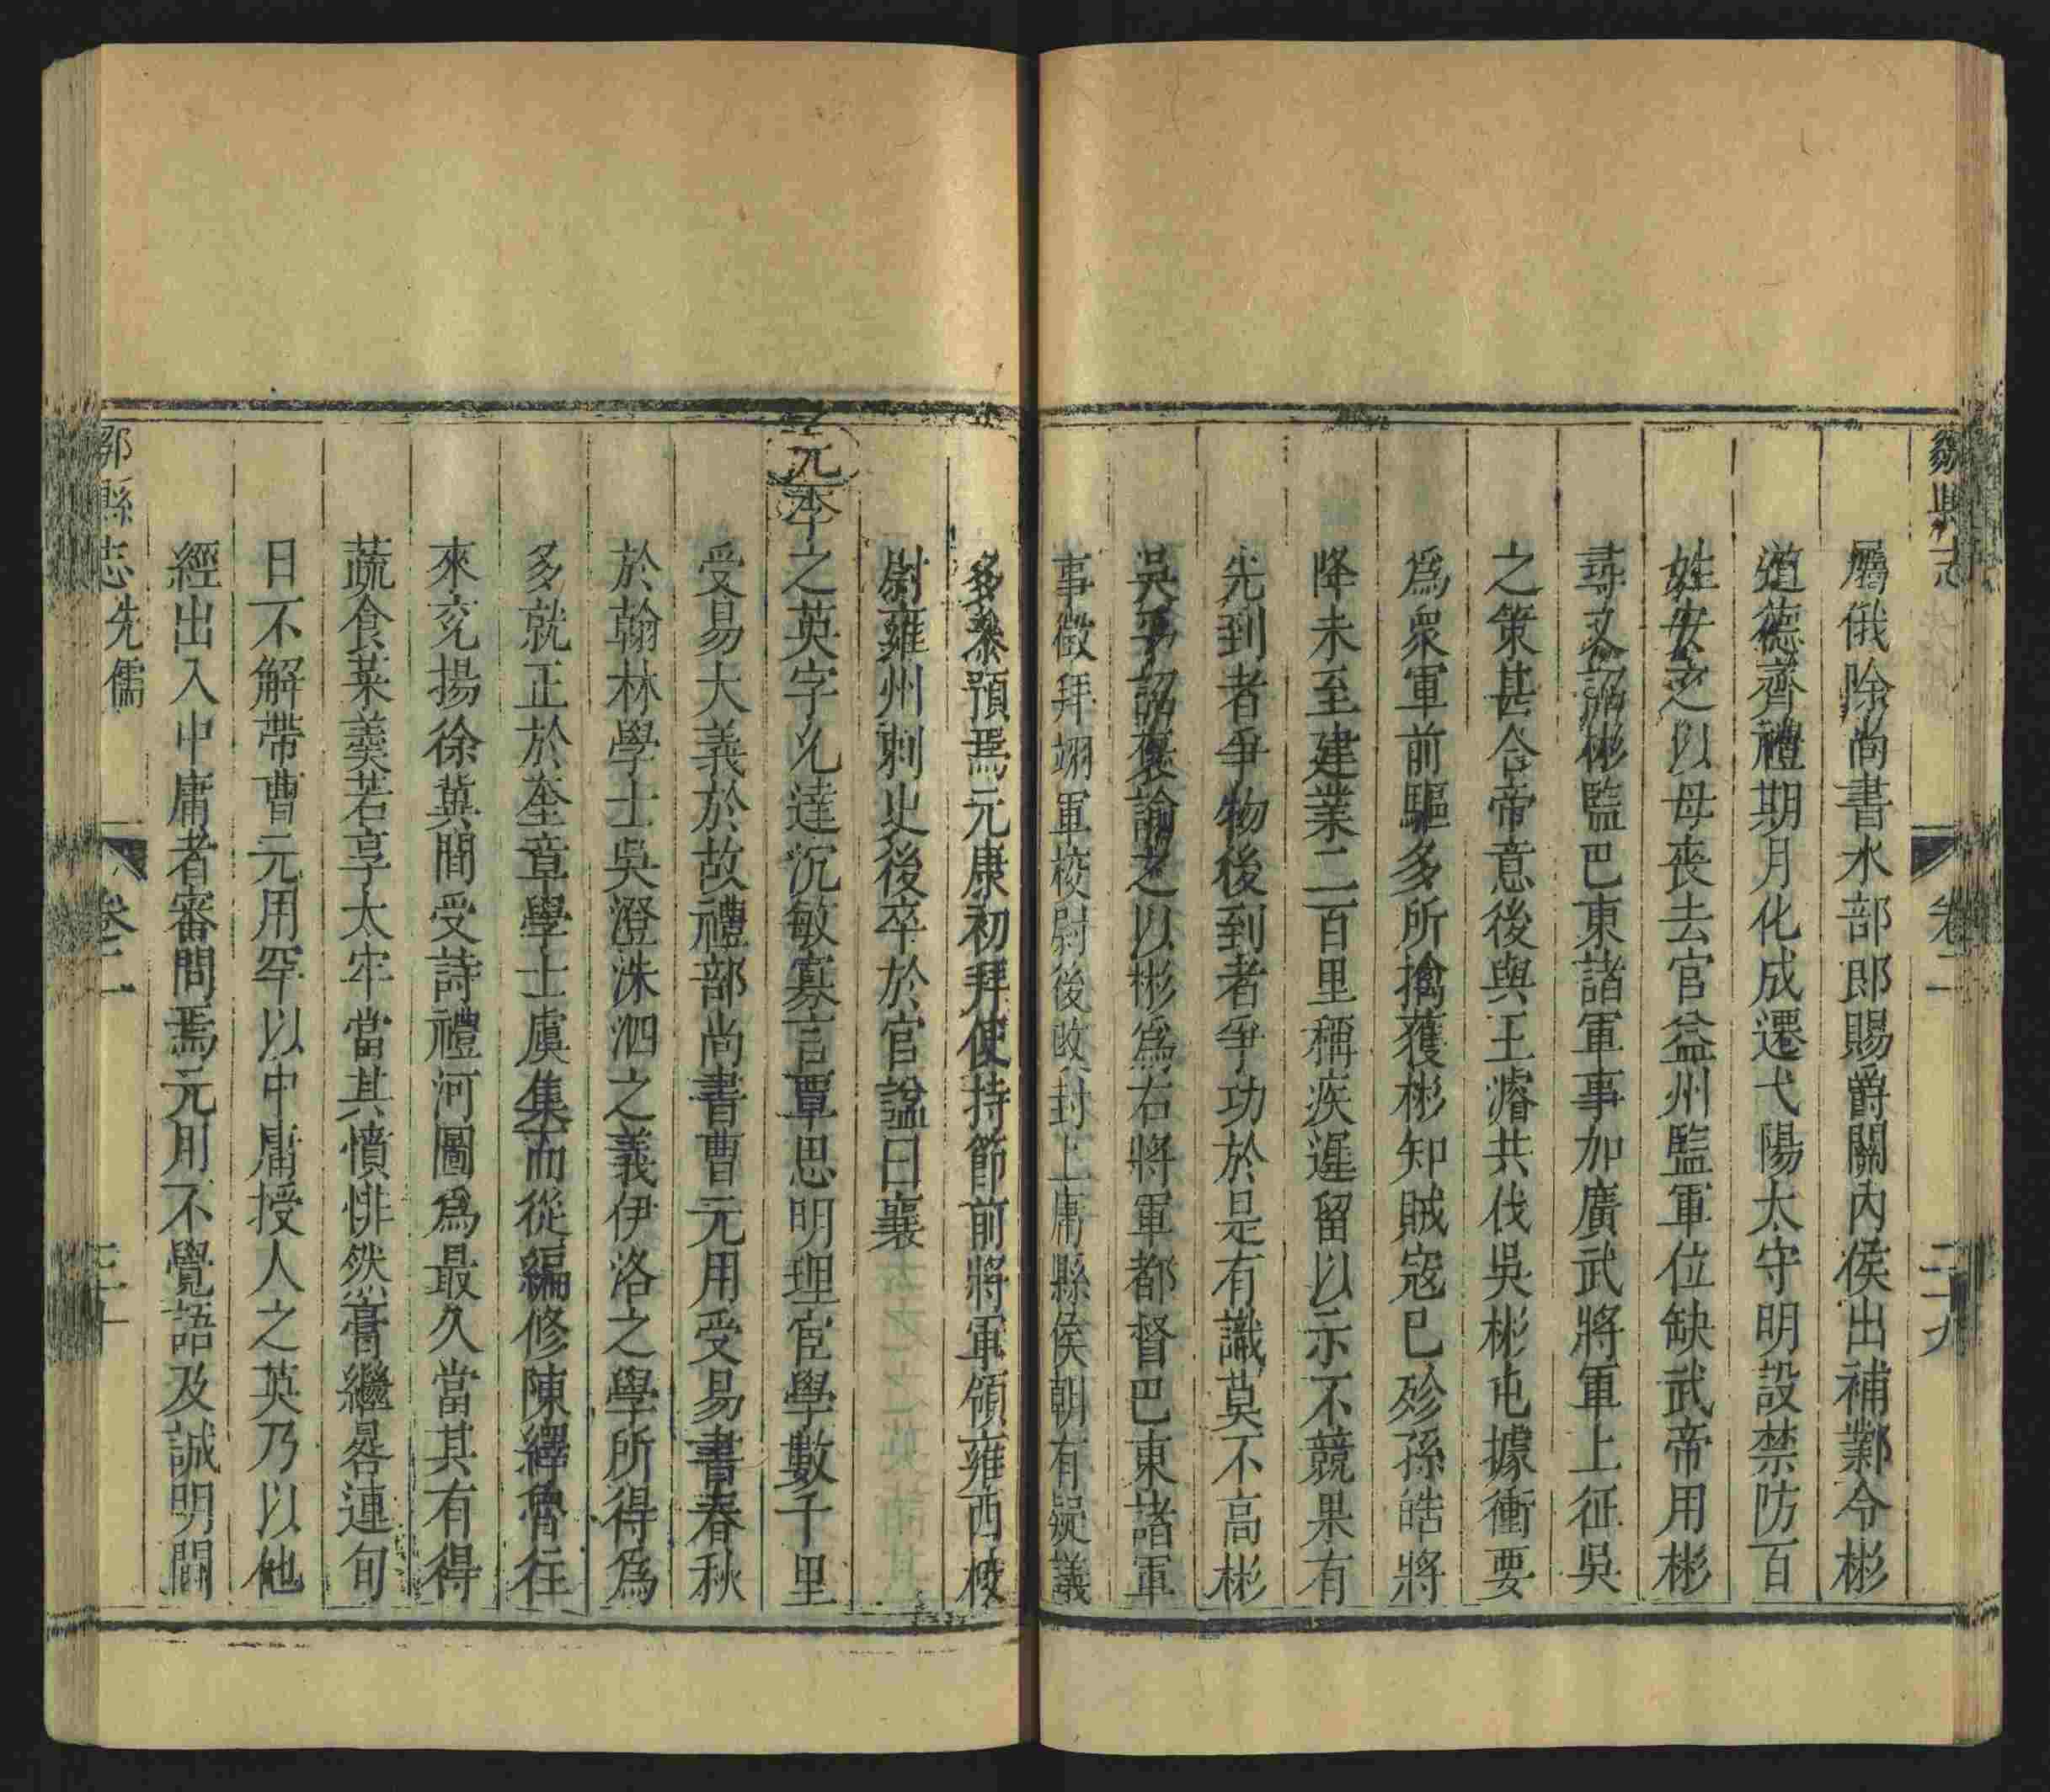 鄒縣志 卷二 二十九
屬俄除尚書水部郎賜爵關內侯出補鄴令彬
道德齊禮期月化成遷弋陽太守明設禁防百
姓安之以母喪去官益州監軍位缺武帝用彬
尋又詔彬監巴東諸軍事加廣武將軍上征吳
之策甚合帝意後與王濬共伐吳彬屯據衝要
爲衆軍前驅多所擒獲彬知賊寇已殄孫皓將
降未至建業二百里稱疾遲留以示不競果有
先到者爭物後到者爭功於是有識莫不高彬
吳平詔褒諭之以彬爲右將軍都督巴東諸軍
事徵拜翊軍校尉後改封上庸縣侯朝有疑議
多叅預焉元康初拜使持節前將軍領雍西校
尉雍州刺史後卒於官諡曰襄
元李之英字允達沉敏寡言覃思明理宦學數千里
受易大義於故禮部尚書曹元用受易書春秋
於翰林學士吳澄洙泗之義伊洛之學所得爲
多就正於奎章學士虞集而從編修陳繹曾往
來兖揚徐冀間受詩禮河圖爲最久當其有得
蔬食菜羹若享太牢當其憤悱然膏繼晷連旬
日不解帶曹元用罕以中庸授人之英乃以他
經出入中庸者審問焉元用不覺語及誠明關
鄒縣志 先儒 卷二 三十